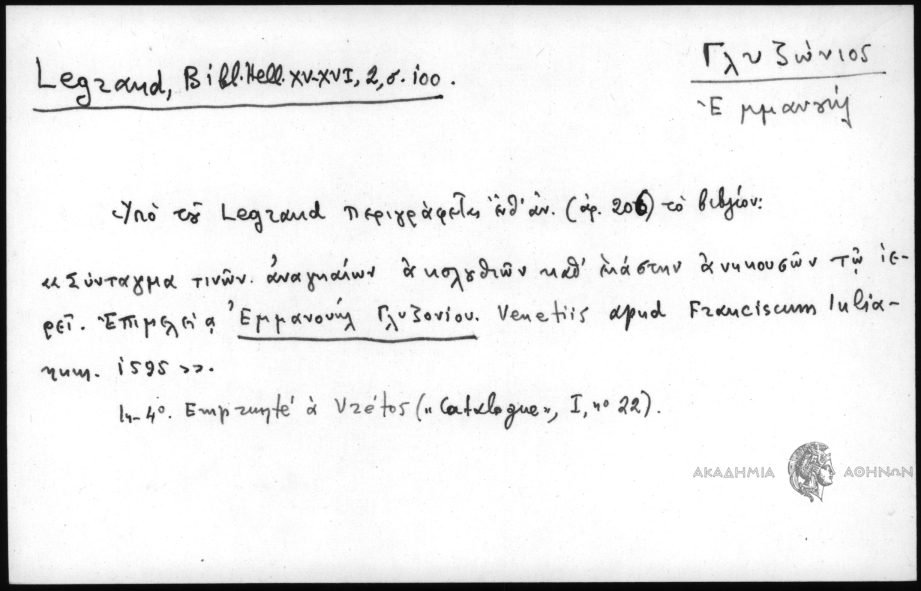 Γλυζώνιος
Ἐμμανουήλ
Legrand, Bibl. Hell. XV-XVI, 2, σ. 100.
Ὑπὸ τοῦ Legrand περιγράφεται ἐνθ' ἀν. (ἀρ. 206) τὸ βιβλίον:
«Σύνταγμα τινῶν ἀναγκαίων ἀκολουθιῶν καθ' ἑκάστην ἀνηκουσῶν τῷ ἱε-
ρεῖ. Ἐπιμελείᾳ Ἐμμανουήλ Γλυζονίου. Venetiis apud Franciscum Iulia-
num. 1595».
In-4º. Emprunté à Vrétos («Catalogue», I, nº 22).
ΑΚΑΔΗΜΙΑ ΑΘΗΝΩΝ